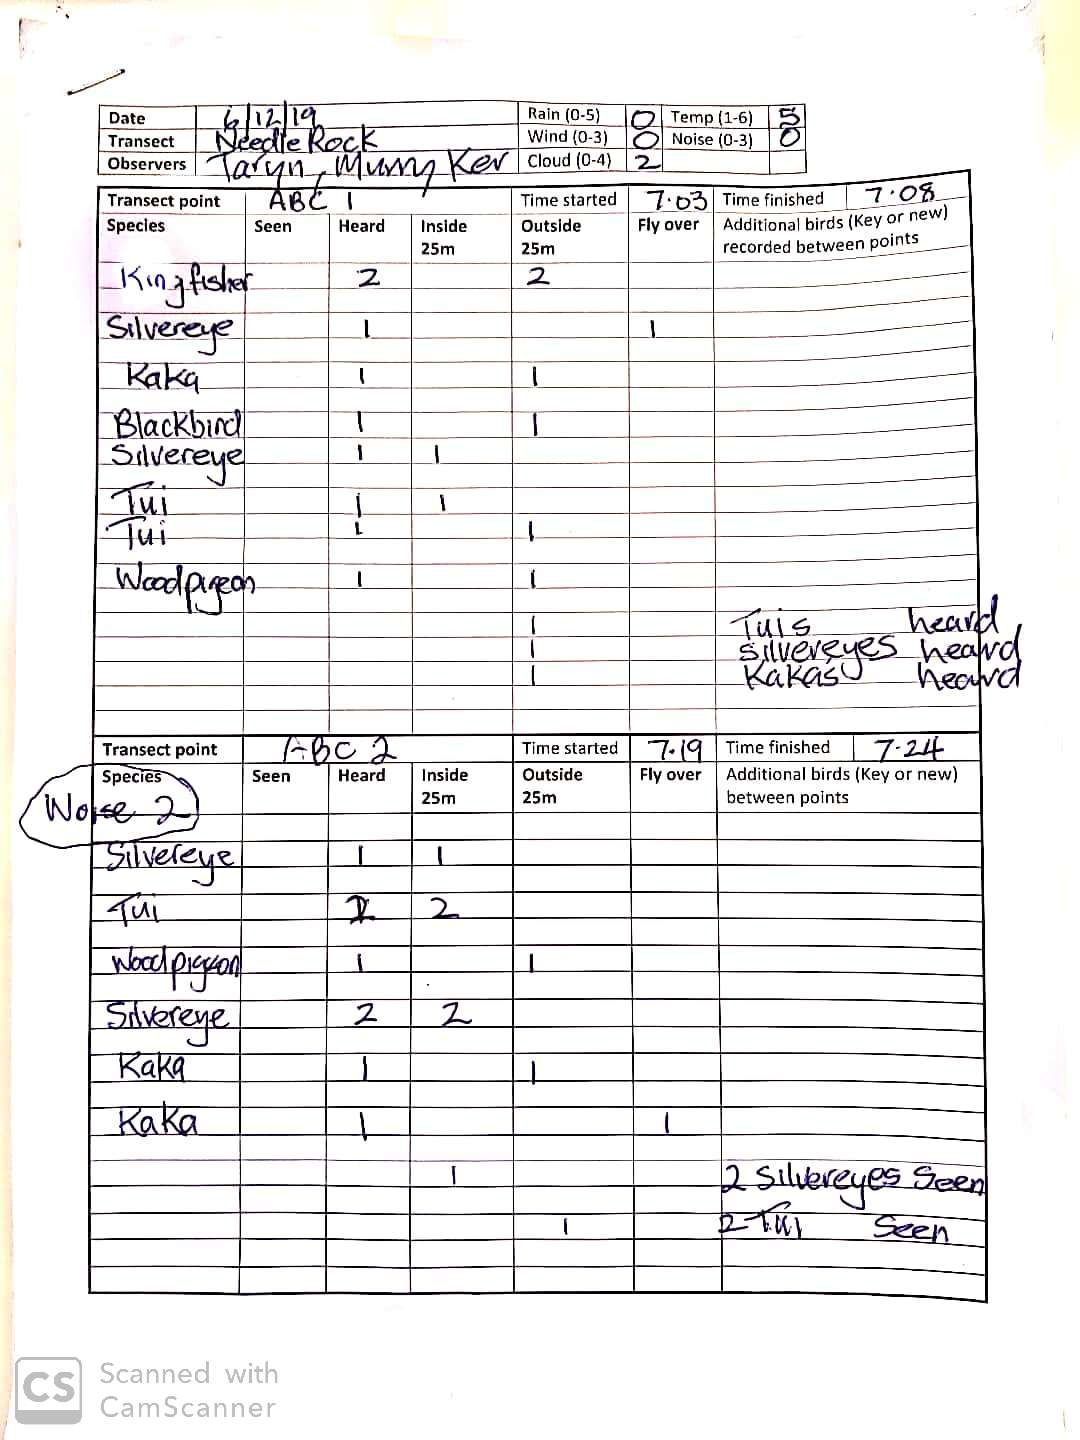 Date 6/12/19 Rain (0-5) 0 Temp (1-6) 5
Transect Needle Rock Wind (0-3) 0 Noise (0-3) 0
Observers Taryn, Kev Cloud (0-4) 2
Transect point ABC 1 Time started 7.03 Time finished 7.08
Species Seen Heard Inside 25m Outside 25m Fly over Additional birds (Key or new) recorded between points
Kingfisher 2 2
Silvereye 1 1
Kaka 1 1
Blackbird 1 1
Silvereye 1 1
Tui 1 1
Tui 1 1
Woodpigeon 1 1
1 Tuis heard
1 Silvereyes heard
1 Kakas heard
Transect point ABC 2 Time started 7.19 Time finished 7.24
Species Seen Heard Inside 25m Outside 25m Fly over Additional birds (Key or new) between points
Noise 2
Silvereye 1 1
Tui 2
Woodpigeon 1 1
Silvereye 2 2
Kaka 1 1
Kaka 1 1
1 2 Silvereyes Seen
1 2 Tui Seen
CS Scanned with
CamScanner